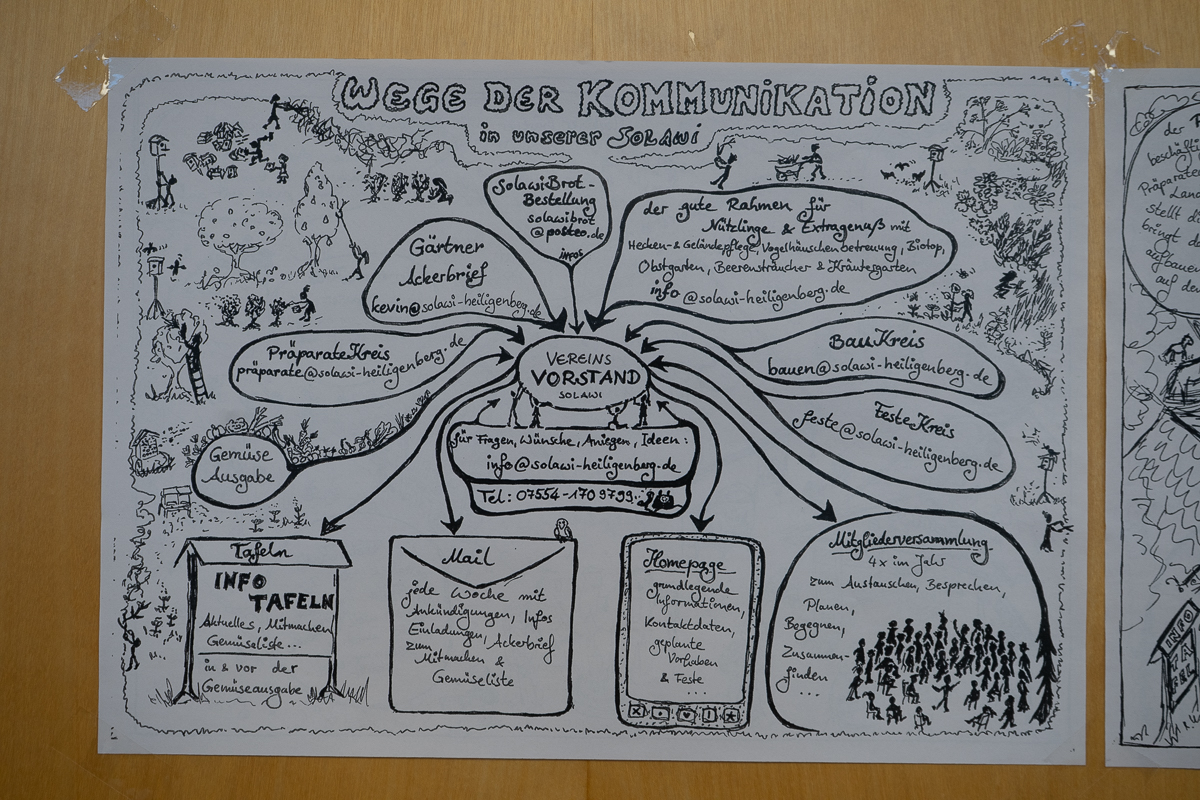 WEGE DER KOMMUNIKATION
in unserer SOLAWI
SolawiBrot-
Bestellung
solawibrot
@posteo.de
INFOS
Gärtner
Ackerbrief
kevin@solawi-heiligenberg.de
der gute Rahmen für
Nützlinge & Extragenuß mit
Hecken- & Geländepflege, Vogelhäuschenbetreuung, Biotop,
Obstgarten, Beerensträucher & Kräutergarten
info@solawi-heiligenberg.de
PräparateKreis
präparate@solawi-heiligenberg.de
VEREINS
VORSTAND
SOLAWI
BauKreis
bauen@solawi-heiligenberg.de
FesteKreis
feste@solawi-heiligenberg.de
Gemüse
Ausgabe
für Fragen, Wünsche, Anliegen, Ideen:
info@solawi-heiligenberg.de
Tel: 07554-1709799
Tafeln
INFO
TAFELN
Aktuelles, Mitmachen
Gemüseliste...
in & vor der
Gemüseausgabe
Mail
jede Woche mit
Ankündigungen, Infos
Einladungen, Ackerbrief
zum
Mitmachen &
Gemüseliste
Homepage
grundlegende
Informationen,
Kontaktdaten,
geplante
Vorhaben
& Feste
...
Mitgliederversammlung
4x im Jahr
zum Austauschen, Besprechen,
Planen,
Begegnen,
Zusammen-
finden
...
der
beschäfti
Präparate
Lan
stellt d
bringt d
aufbauen
auf den
INFO